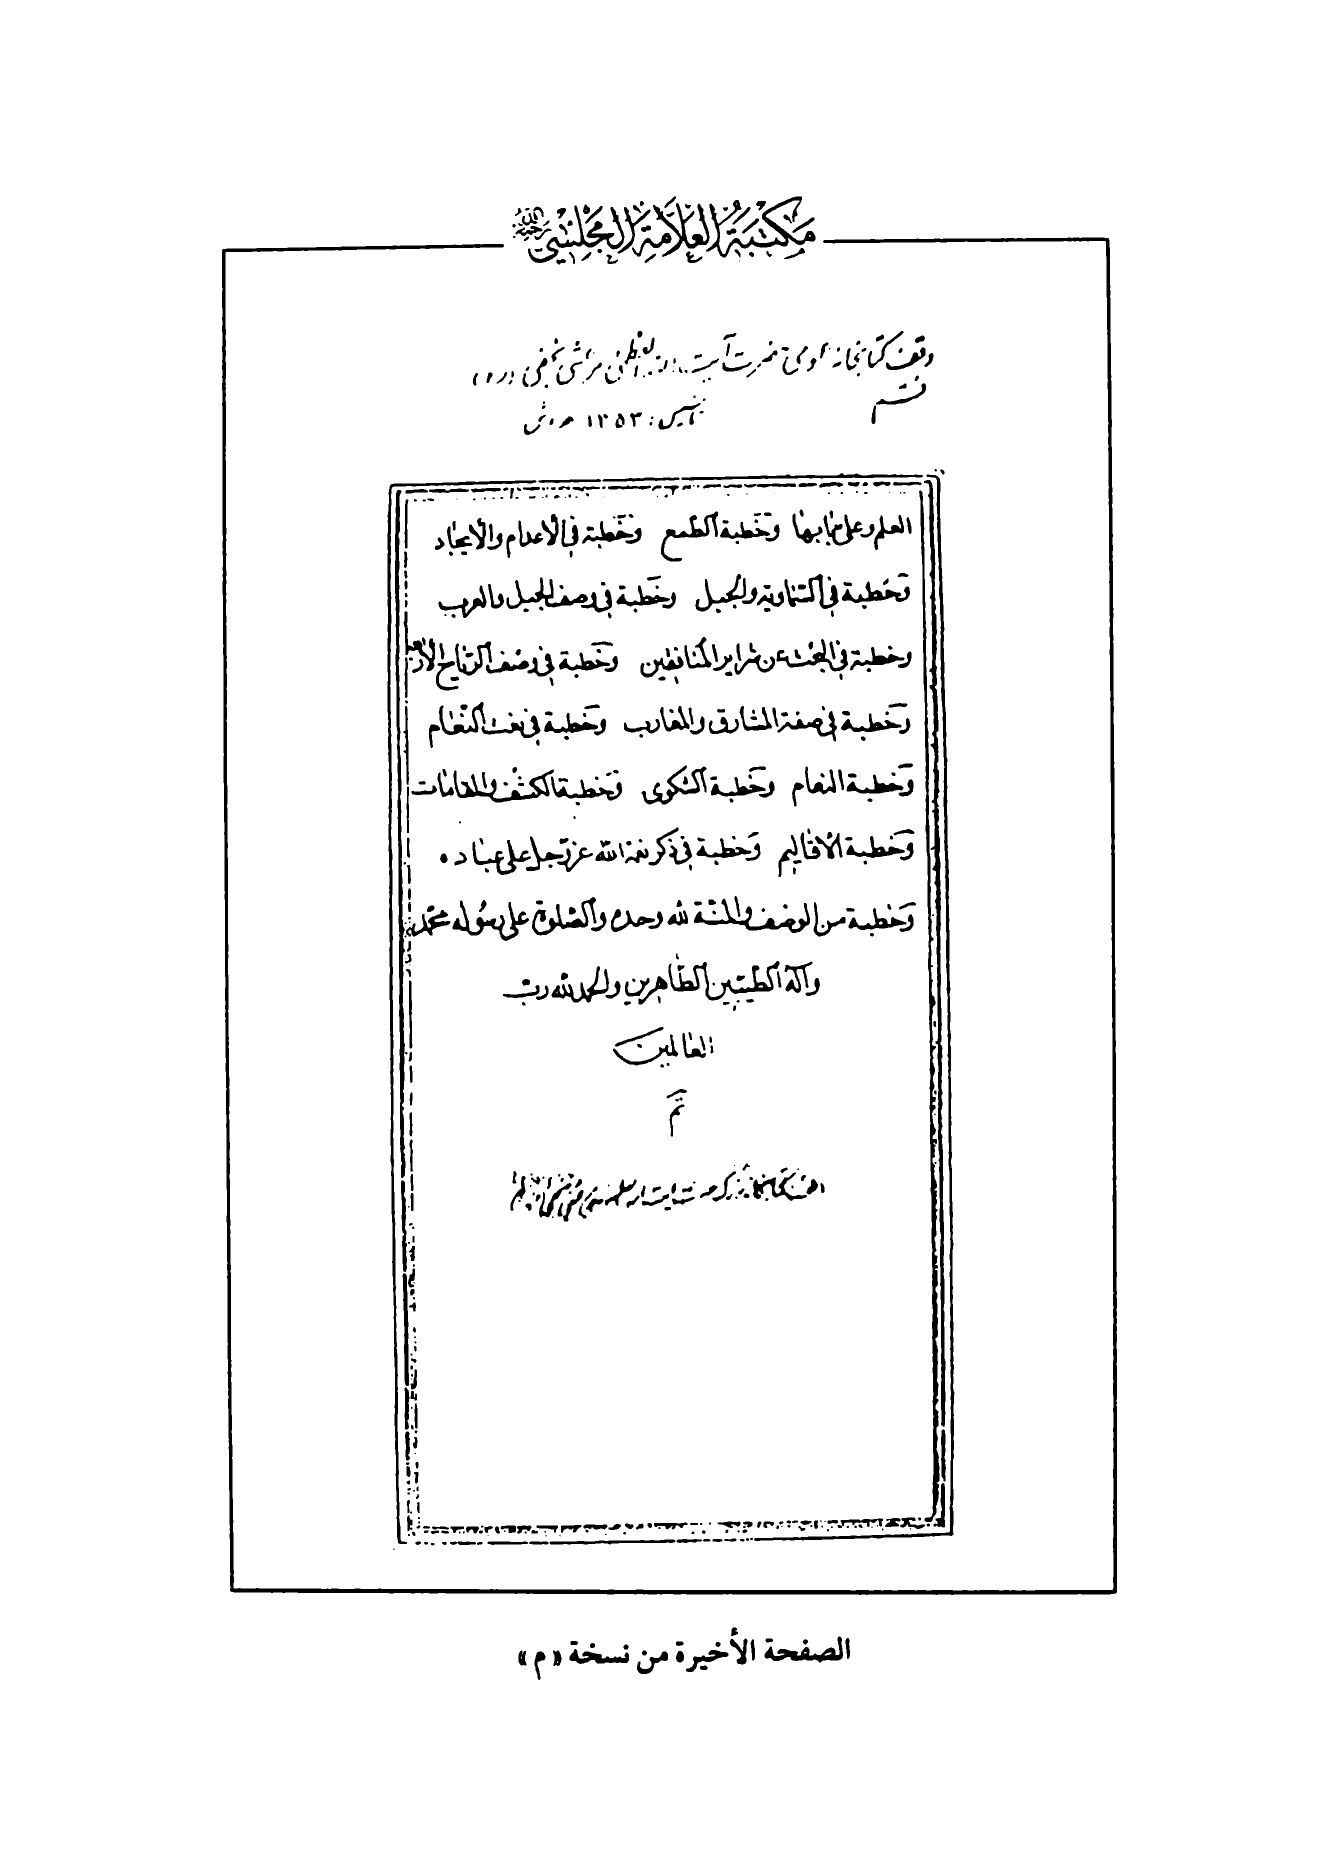 مكتبة العلامة المجلسي رحمه الله
وقف كتابخانه عمومى حضرت آيت الله العظمى مرعشى نجفى (ره)
قم
تأسيس: ١٣٥٣ هـ ش
العلم وعلى وخطبة الطمع وخطبة في الاعدام والايجاد
وخطبة في السماوية والجبل وخطبة في وصف الجبل والعرب
وخطبة في البحث عن سراير المنافقين وخطبة في وصف الرياح الأربعة
وخطبة في صفة المشارق والمغارب وخطبة في نعت النعام
وخطبة النعام وخطبة الشكوى وخطبة الكشف والمقامات
وخطبة الأقاليم وخطبة في ذكر نعمة الله عز وجل على عباده
وخطبة من الوصف والمنة لله وحده والصلوة على رسوله محمد
وآله الطيبين الطاهرين والحمد لله رب
العالمين
تم
الصفحة الأخيرة من نسخة «م»